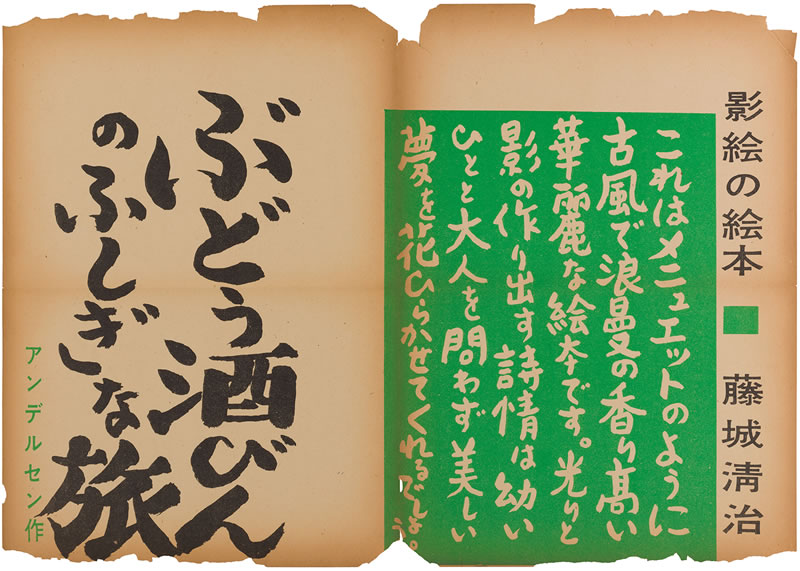 影絵の絵本 ■ 藤城清治
これはメニュエットのように
古風で浪曼の香り高い
華麗な絵本です。光りと
影の作り出す詩情は幼い
ひとと大人を問わず美しい
夢を花ひらかせてくれるでしょう。
ぶどう酒びん
のふしぎな旅
アンデルセン作